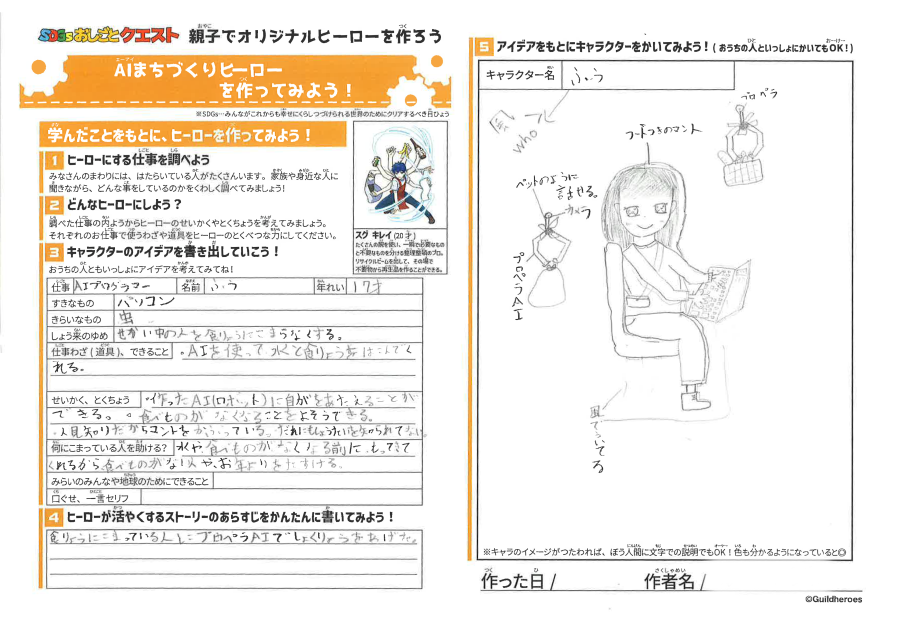 SDGsおしごとクエスト 親子でオリジナルヒーローを作ろう
AIまちづくりヒーロー
を作ってみよう！
※SDGs…みんながこれからも幸せにくらしつづけられる世界のためにクリアするべき目ひょう
学んだことをもとに、ヒーローを作ってみよう！
1 ヒーローにする仕事を調べよう
みなさんのまわりには、はたらいている人がたくさんいます。家族や身近な人に
聞きながら、どんな事をしているのかをくわしく調べてみましょう!
2 どんなヒーローにしよう？
調べた仕事の内ようからヒーローのせいかくやとくちょうを考えてみましょう。
それぞれのお仕事で使うわざや道具をヒーローのとくべつな力にしてください。
スグ キレイ(20才)
たくさんの腕を使い、一瞬で必要なもの
と不要なものを分ける整理整頓のプロ。
リサイクルビームを出して、その場で
不要物から再生品を作ることができる。
3 キャラクターのアイデアを書き出していこう！
おうちの人ともいっしょにアイデアを考えてみてね！
仕事 AIプログラマー 名前 ふう 年れい 17才
すきなもの パソコン
きらいなもの 虫
しょう来のゆめ せかい中の人を食りょうにこまらなくする。
仕事わざ(道具)、できること ・AIを使って水と食りょうをはこんでく
れる。
せいかく、とくちょう ・作ったAI(ロボット)に自がをあたえることが
できる。・食べものがなくなることをよそうできる。
・人見知りだからマントをかぶっている。だれにもしょうたいを知られてない。
何にこまっている人を助ける? 水や食べものがなくなる前にもってきて
くれるから食べものがない人や、お年よりをたすける。
みらいのみんなや地球のためにできること
口ぐせ、一言セリフ
4 ヒーローが活やくするストーリーのあらすじをかんたんに書いてみよう！
食りょうにこまっている人にプロペラAIでしょくりょうをあげた。
5 アイデアをもとにキャラクターをかいてみよう！(おうちの人といっしょにかいてもOK！)
キャラクター名 ふう
風
who
プロペラ
フードつきのマント
ペットのように
話せる。
カメラ
プロペラAI
風でういてる
※キャラのイメージがつたわれば、ぼう人間に文字での説明でもOK！色も分かるようになっていると◎
作った日 / 作者名 /
©Guildheroes